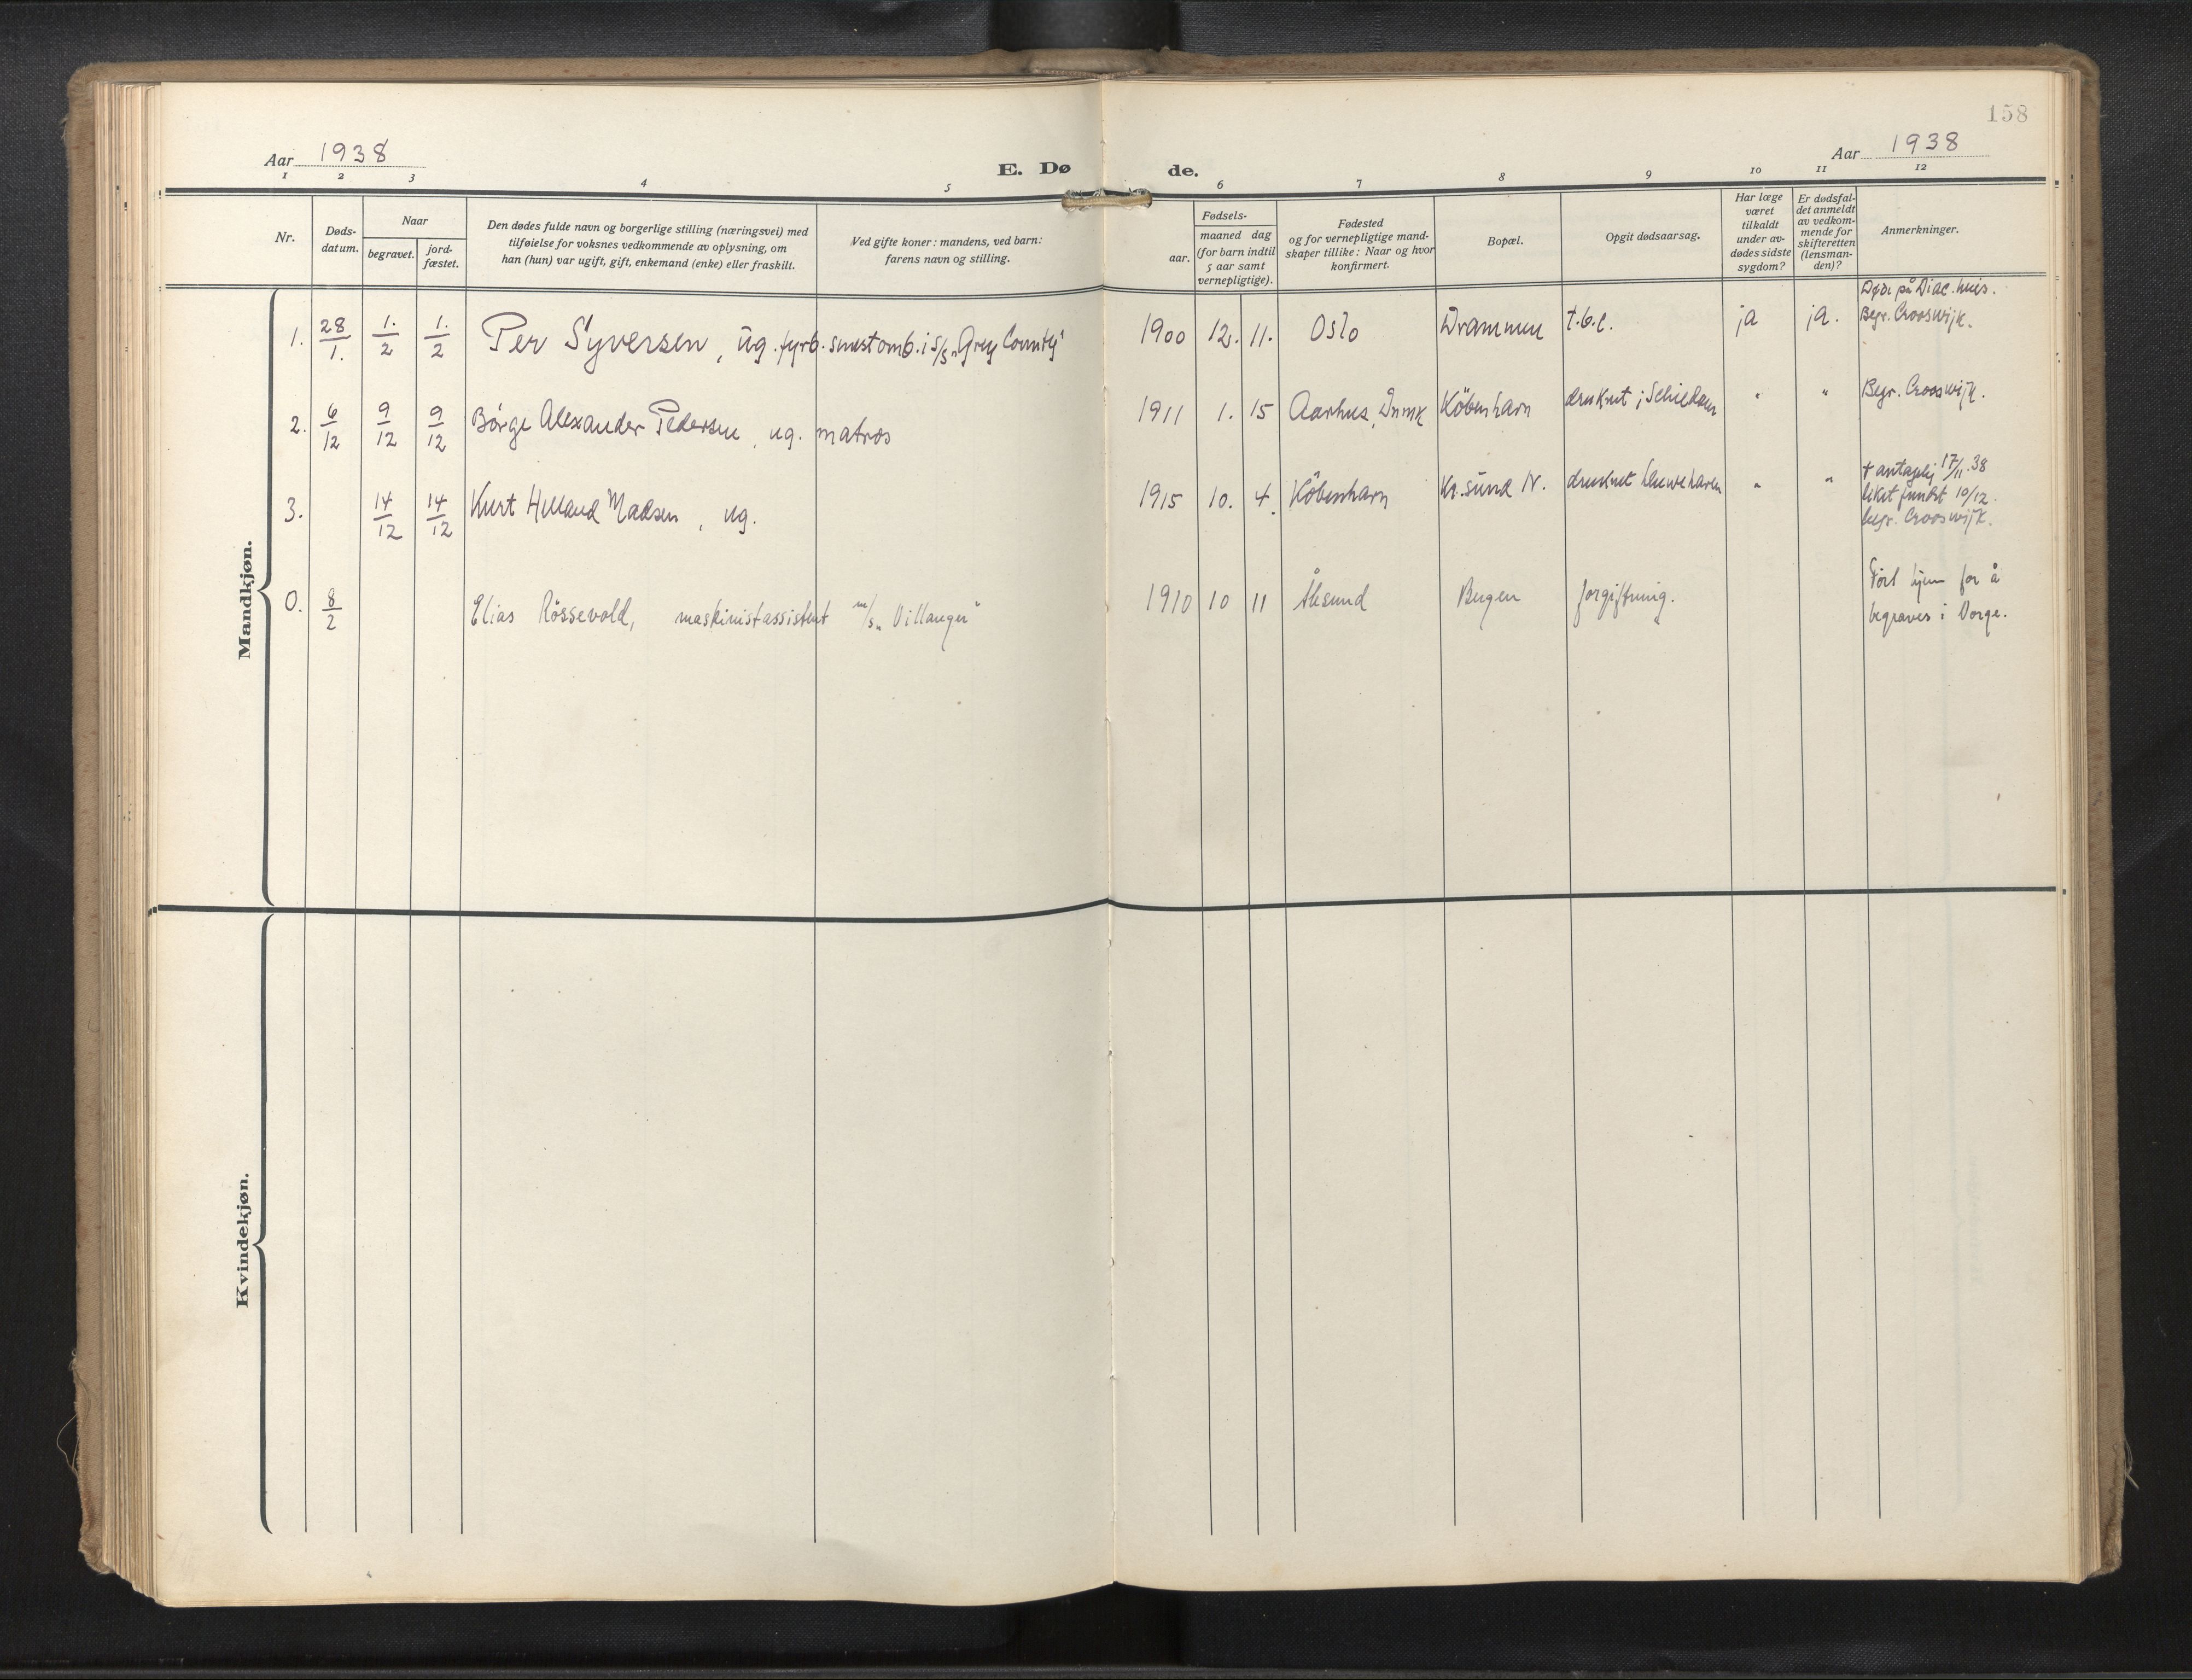 158
Aar 1938
E. Døde.
Aar 1938
1 2 3 4 5 6 7 8 9 10 11 12
Nr.
Døds-
datum.
Naar
begravet.
jord-
fæstet.
Den dødes fulde navn og borgerlige stilling (næringsvei) med
tilføielse for voksnes vedkommende av oplysning, om
han (hun) var ugift, gift, enkemand (enke) eller fraskilt.
Ved gifte koner: mandens, ved barn:
farens navn og stilling.
Fødsels-
aar.
maaned dag
(for barn indtil
5 aar samt
vernepligtige).
Fødested
og for vernepligtige mand-
skaper tillike: Naar og hvor
konfirmert.
Bopæl.
Opgit dødsaarsag.
Har læge
været
tilkaldt
under av-
dødes sidste
sygdom?
Er dødsfal-
det anmeldt
av vedkom-
mende for
skifteretten
(lensman-
den)?
Anmerkninger.
Mandkjøn.
1. 28/1. 1./2 1./2 Per Syversen, ug. fyrb. sunstomb. i S/S "Grey County" 1900 12. 11. Oslo Drammen t.b.c. ja ja. Døde på Diac. huis.
Begr. Crooswijk.
2. 6/12 9/12 9/12 Börge Alexander Pedersen, ug. matros 1911 1. 15 Aarhus, Dnmk Köbenharn druknet i Schiedam " " Begr. Crooswijk.
3. 14/12 14/12 Kurt Madsen, ug. 1915 10. 4. Köbenharn Kr.sund N. druknet " " + antagelig 17/11.38
liket fundet 10/12.
begr. Crooswijk.
0. 8/2 Elias Rössevold, maskinistassistent m/s "Villanger" 1910 10 11 Ålesund Bergen forgiftning. Ført hjem for å
begraves i Norge.
Kvindekjøn.